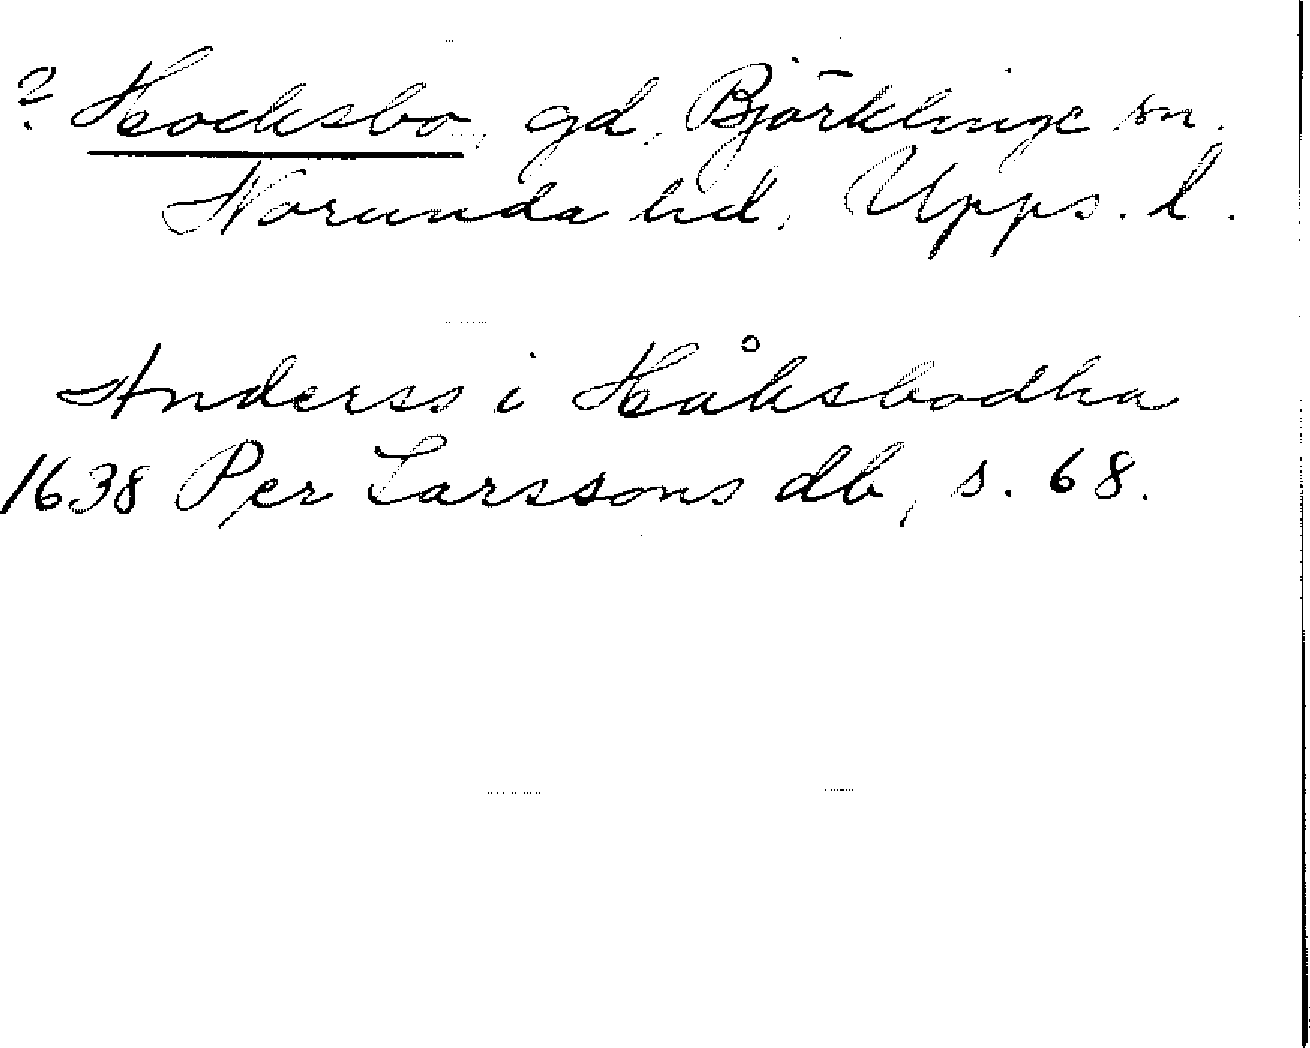 ? Hocksbo, gd, Björklinge sn.
Norunda hd, Upps. l.
Anderss i Håksbodha
1638 Per Larssons db, s. 68.